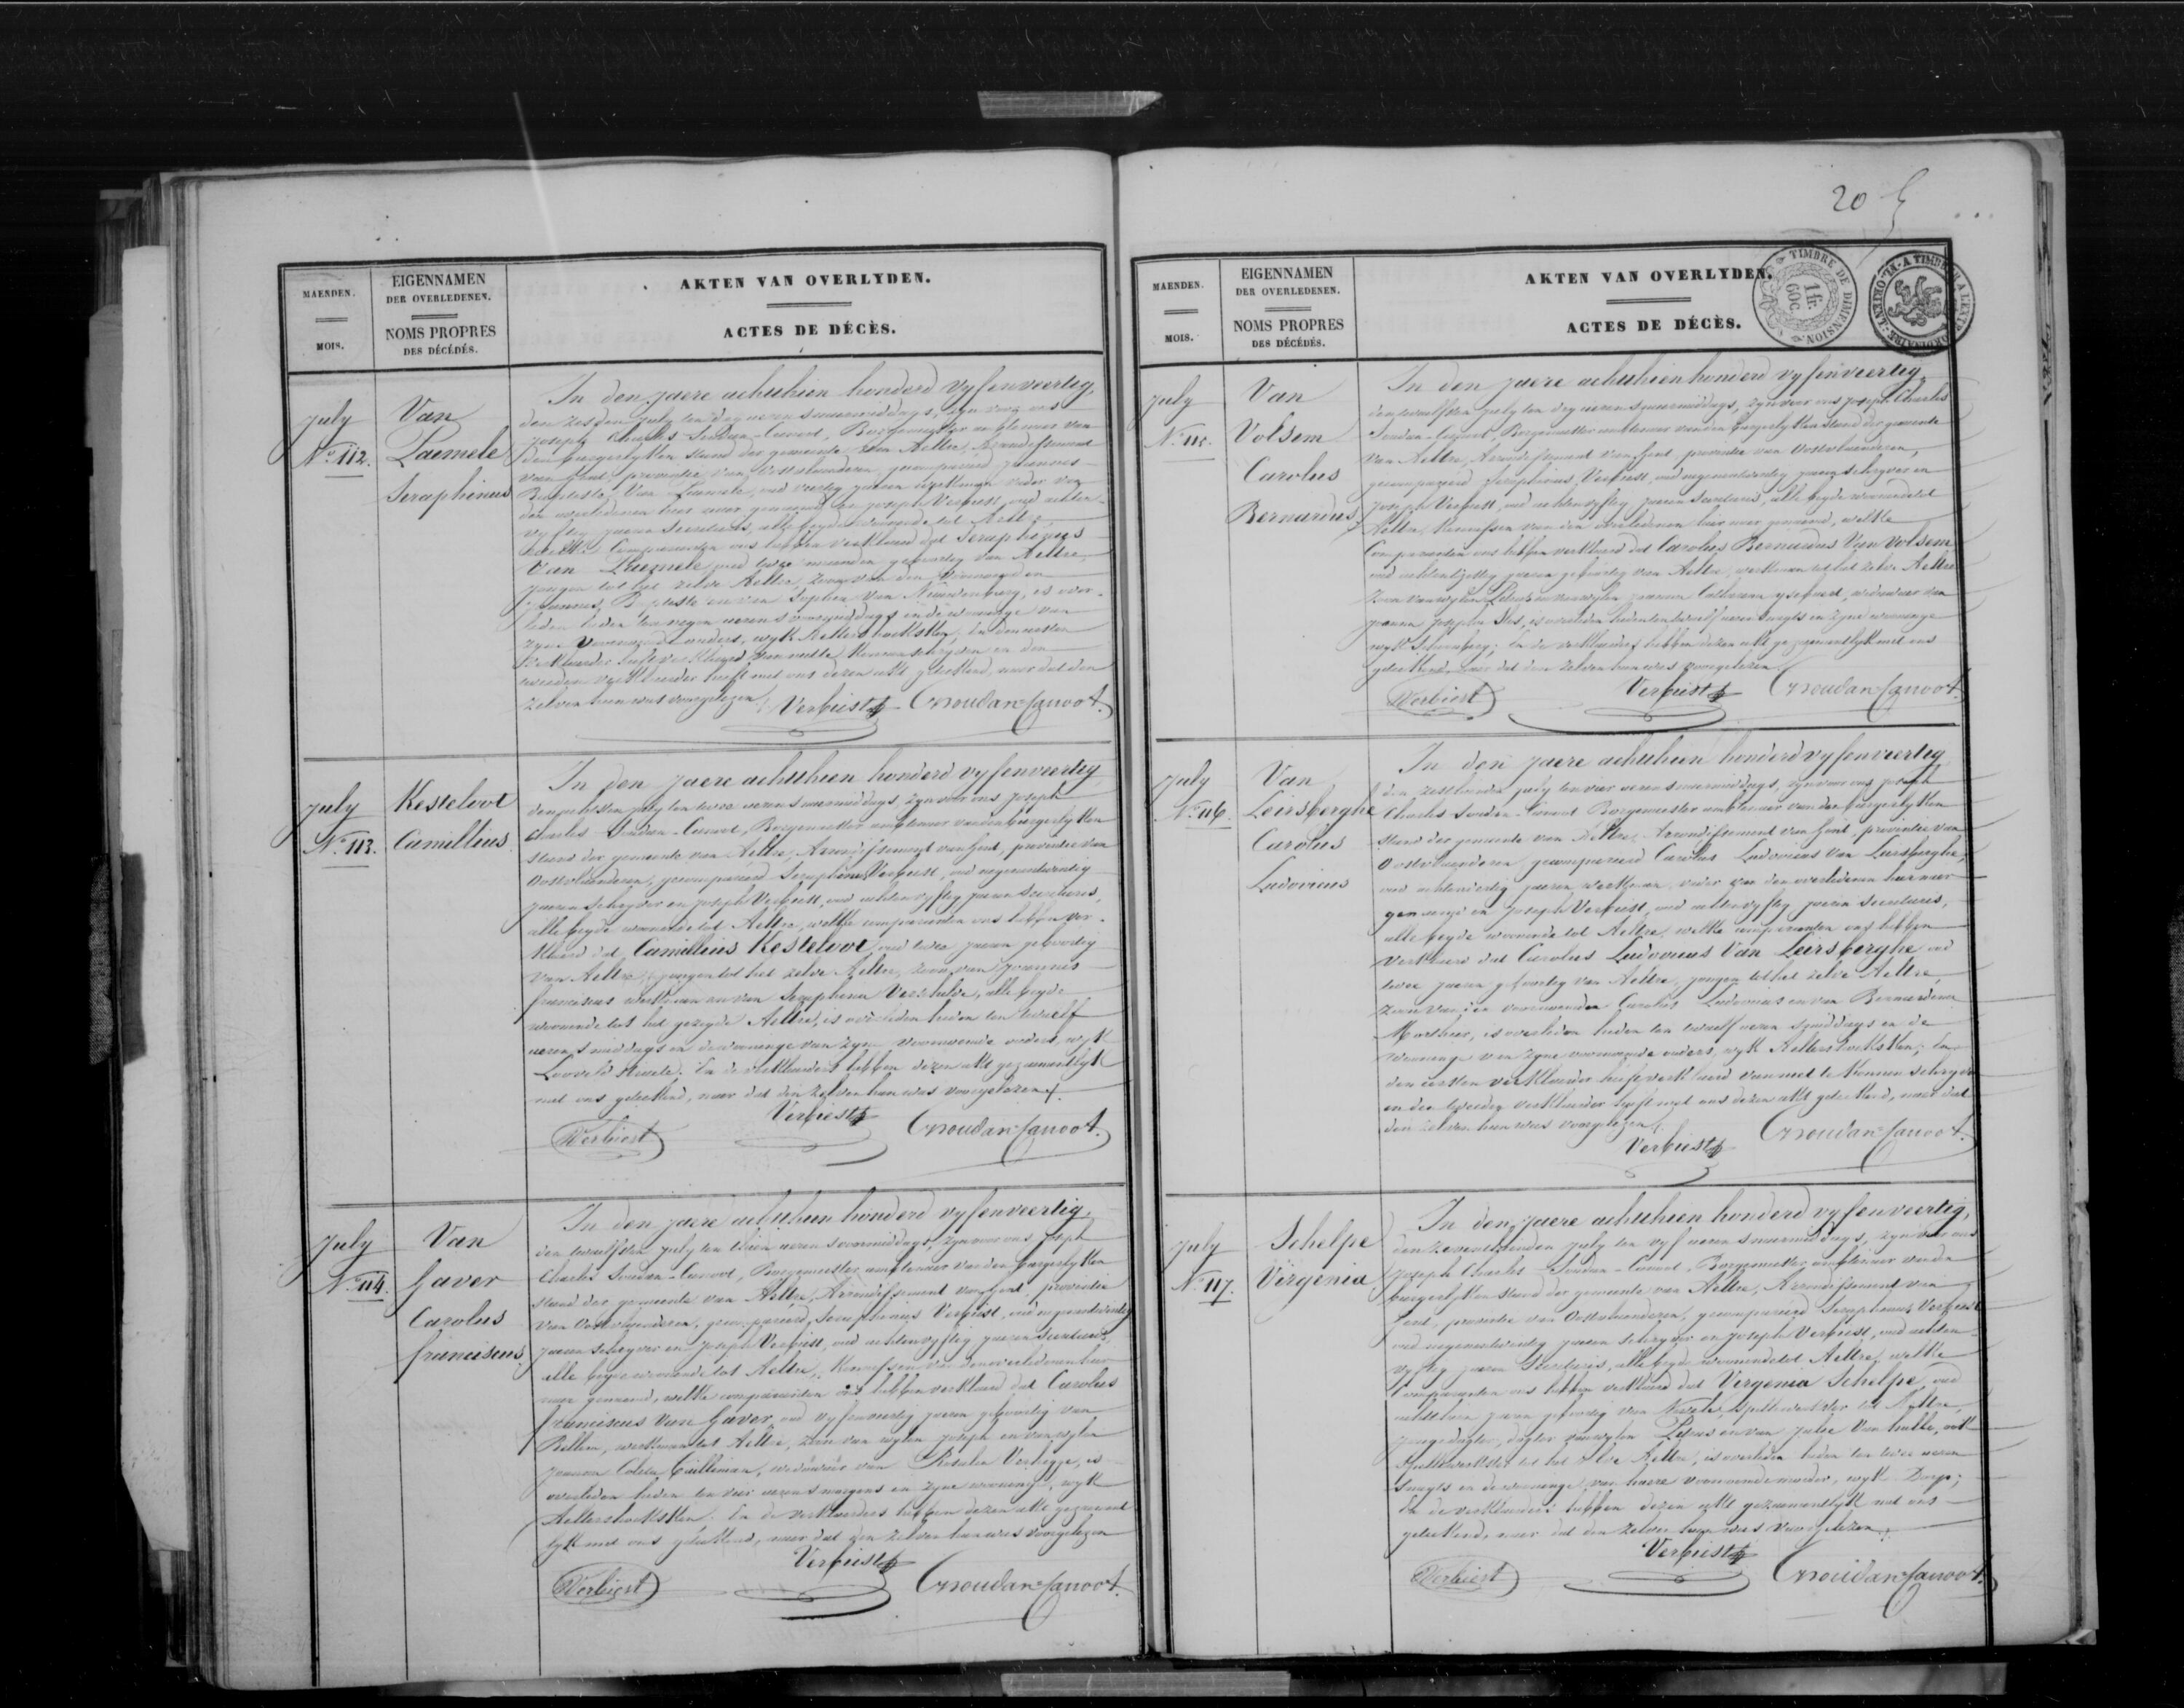 MAENDEN.
MOIS.
EIGENNAMEN
DER OVERLEDENEN.
NOMS PROPRES
DES DÉCÉDÉS.
AKTEN VAN OVERLYDEN.
ACTES DE DÉCÈS.
July
Nº 112.
Van
Laemele
Seraphinus
In den jaere achthien honderd vyfenveertig,
den zesden july ten dry ueren snaermiddags, zyn voor ons
Joseph Charles Soudan-Canoot, Borgemeester ambtenaer van
den burgerlyken stand der gemeente van Aeltre, Arrondissement
van Gent, provintie van Oostvlaenderen, gecompareerd Joannes
Baptiste Van Laemele, oud veertig jaeren werkman vader van
den overledenen hier naer genoemd en Joseph Verbiest, oud achten-
vyftig jaeren secretaris, alle beyde woonende tot Aeltre,
welke Comparanten ons hebben verklaerd dat Seraphinus
Van Laemele oud twee maenden geboortig van Aeltre,
jongen tot het zelve Aeltre, zoon van den voornoemden
Joannes Baptiste en van Sophia Van , is over-
leden heden ten negen ueren voormiddags in de wooninge van
zyne voornoemde ouders, wyk Aelterhoeksken; en den eersten
verklaerder heeft verklaerd van niet te konnen schryven en den
tweeden verklaerder heeft met ons dezen akt geteekend, naer dat den
zelven hun was voorgelezen.
Verbiest CJSoudan-Canoot.
July
Nº 113.
Kesteloot
Camillius
In den jaere achthien honderd vyfenveertig
den july ten twee ueren snaermiddags, zyn voor ons Joseph
Charles Soudan-Canoot, Borgemeester ambtenaer van den burgerlyken
stand der gemeente van Aeltre, Arrondissement van Gent, provintie van
Oostvlaenderen, gecompareerd Seraphinus Verbiest, oud negenentwintig
jaeren schryver en Joseph Verbiest, oud achtenvyftig jaeren secretaris,
alle beyde woonende tot Aeltre, welke comparanten ons hebben ver-
klaerd dat Camillius Kesteloot, oud twee jaeren geboortig
van Aeltre, jongen tot het zelve Aeltre, zoon van Joannes
franciscus werkman en van Seraphina Verhulde, alle beyde
woonende tot het gezegde Aeltre, is overleden heden ten twaelf
ueren smiddags in de wooninge van zyne voornoemde ouders, wyk
Loovelde . En de verklaerders hebben dezen akt gezamentlyk
met ons geteekend, naer dat den zelven hun was voorgelezen.
Verbiest Verbiest CJSoudan-Canoot.
July
Nº 114.
Van
Gaver
Carolus
franciscus
In den jaere achthien honderd vyfenveertig,
den twaelfden july ten thien ueren svoormiddags, zyn voor ons Joseph
Charles Soudan-Canoot, Borgemeester ambtenaer van den burgerlyken
stand der gemeente van Aeltre, Arrondissement van Gent, provintie
van Oostvlaenderen, gecompareerd, Seraphinus Verbiest, oud negenentwintig
jaeren schryver en Joseph Verbiest, oud achtenvyftig jaeren secretaris,
alle beyde woonende tot Aeltre, kennissen van den overledenen hier
naer genoemd, welke comparanten ons hebben verklaerd dat Carolus
franciscus Van Gaver, oud vyfenveertig jaeren geboortig van
Bellem, werkman tot Aeltre, zoon van wylen Joseph en van wylen
Joanna Coleta , weduwaer van Rosalia Verhegge, is
overleden heden ten vier ueren smorgens in zyne wooning, wyk
Aelterhoeksken. En de verklaerders hebben dezen akt gezament
lyk met ons geteekend, naer dat den zelven hun was voorgelezen
Verbiest Verbiest CJSoudan-Canoot.
20
MAENDEN.
MOIS.
EIGENNAMEN
DER OVERLEDENEN.
NOMS PROPRES
DES DÉCÉDÉS.
AKTEN VAN OVERLYDEN.
ACTES DE DÉCÈS.
TIMBRE DE DIMENSION
1 fr.
60c.
July
Nº 115.
Van
Volsem
Carolus
Bernardus
In den jaere achthien honderd vyfenveertig,
den twaelfden july ten dry ueren snaermiddags, zyn voor ons Joseph Charles
Soudan-Canoot, Borgemeester ambtenaer van den burgerlyken stand der gemeente
van Aeltre, Arrondissement van Gent, provintie van Oostvlaenderen,
gecompareerd Seraphinus Verbiest, oud negenentwintig jaeren schryver en
Joseph Verbiest, oud achtenvyftig jaeren secretaris, alle beyde woonende tot
Aeltre, kennissen van den overledenen hier naer genoemd, welke
Comparanten ons hebben verklaerd dat Carolus Bernardus Van Volsem
oud jaeren geboortig van Aeltre, werkman tot het zelve Aeltre
zoon van wylen en van wylen Joanna Catharina , weduwaer van
Joanna Josepha , is overleden heden ten twaelf ueren snagts in zyne wooninge
wyk ; En de verklaerders hebben dezen akt gezamentlyk met ons
geteekend, naer dat den zelven hun was voorgelezen
Verbiest Verbiest CJSoudan-Canoot.
July
Nº 116.
Van
Leirsberghe
Carolus
Ludovicus
In den jaere achthien honderd vyfenveertig
den zesthienden july ten vier ueren snaermiddags, zyn voor ons Joseph
Charles Soudan-Canoot Borgemeester ambtenaer van den burgerlyken
stand der gemeente van Aeltre, Arrondissement van Gent, provintie van
Oostvlaenderen gecompareerd Carolus Ludovicus Van Leirsberghe,
oud jaeren werkman, vader van den overledenen hier naer
genoemd en Joseph Verbiest, oud achtenvyftig jaeren secretaris,
alle beyde woonende tot Aeltre, welke comparanten ons hebben
verklaerd dat Carolus Ludovicus Van Leirsberghe oud
twee jaeren geboortig van Aeltre, jongen tot het zelve Aeltre,
zoon van den voornoemden Carolus Ludovicus en van Bernardina
Morthier, is overleden heden ten twaelf ueren smiddags in de
wooninge van zyne voornoemde ouders, wyk Aelterhoeksken; en
den eersten verklaerder heeft verklaerd van niet te konnen schryven
en den tweeden verklaerder heeft met ons dezen akt geteekend, naer dat
den zelven hun was voorgelezen.
Verbiest CJSoudan-Canoot.
July
Nº 117.
Schelpe
Virgenia
In den jaere achthien honderd vyfenveertig,
den zeventhienden july ten vyf ueren snaermiddags, zyn voor ons
Joseph Charles Soudan-Canoot, Borgemeester ambtenaer van den
burgerlyken stand der gemeente van Aeltre, Arrondissement van
Gent, provintie van Oostvlaenderen, gecompareerd Seraphinus Verbiest
oud negenentwintig jaeren schryver en Joseph Verbiest, oud achten-
vyftig jaeren secretaris, alle beyde woonende tot Aeltre, welke
Comparanten ons hebben verklaerd dat Virgenia Schelpe, oud
achthien jaeren geboortig van Nevele, spellewerkster tot Aeltre,
jonge dogter, dogter van wylen Petrus en van Julie Van hulle, ook
spellewerkster tot het zelve Aeltre, is overleden heden ten twee ueren
snagts in de wooninge van haere voornoemde moeder, wyk Dorp;
En de verklaerders hebben dezen akt gezamentlyk met ons
geteekend, naer dat den zelven hun was voorgelezen.
Verbiest Verbiest CJSoudan-Canoot.